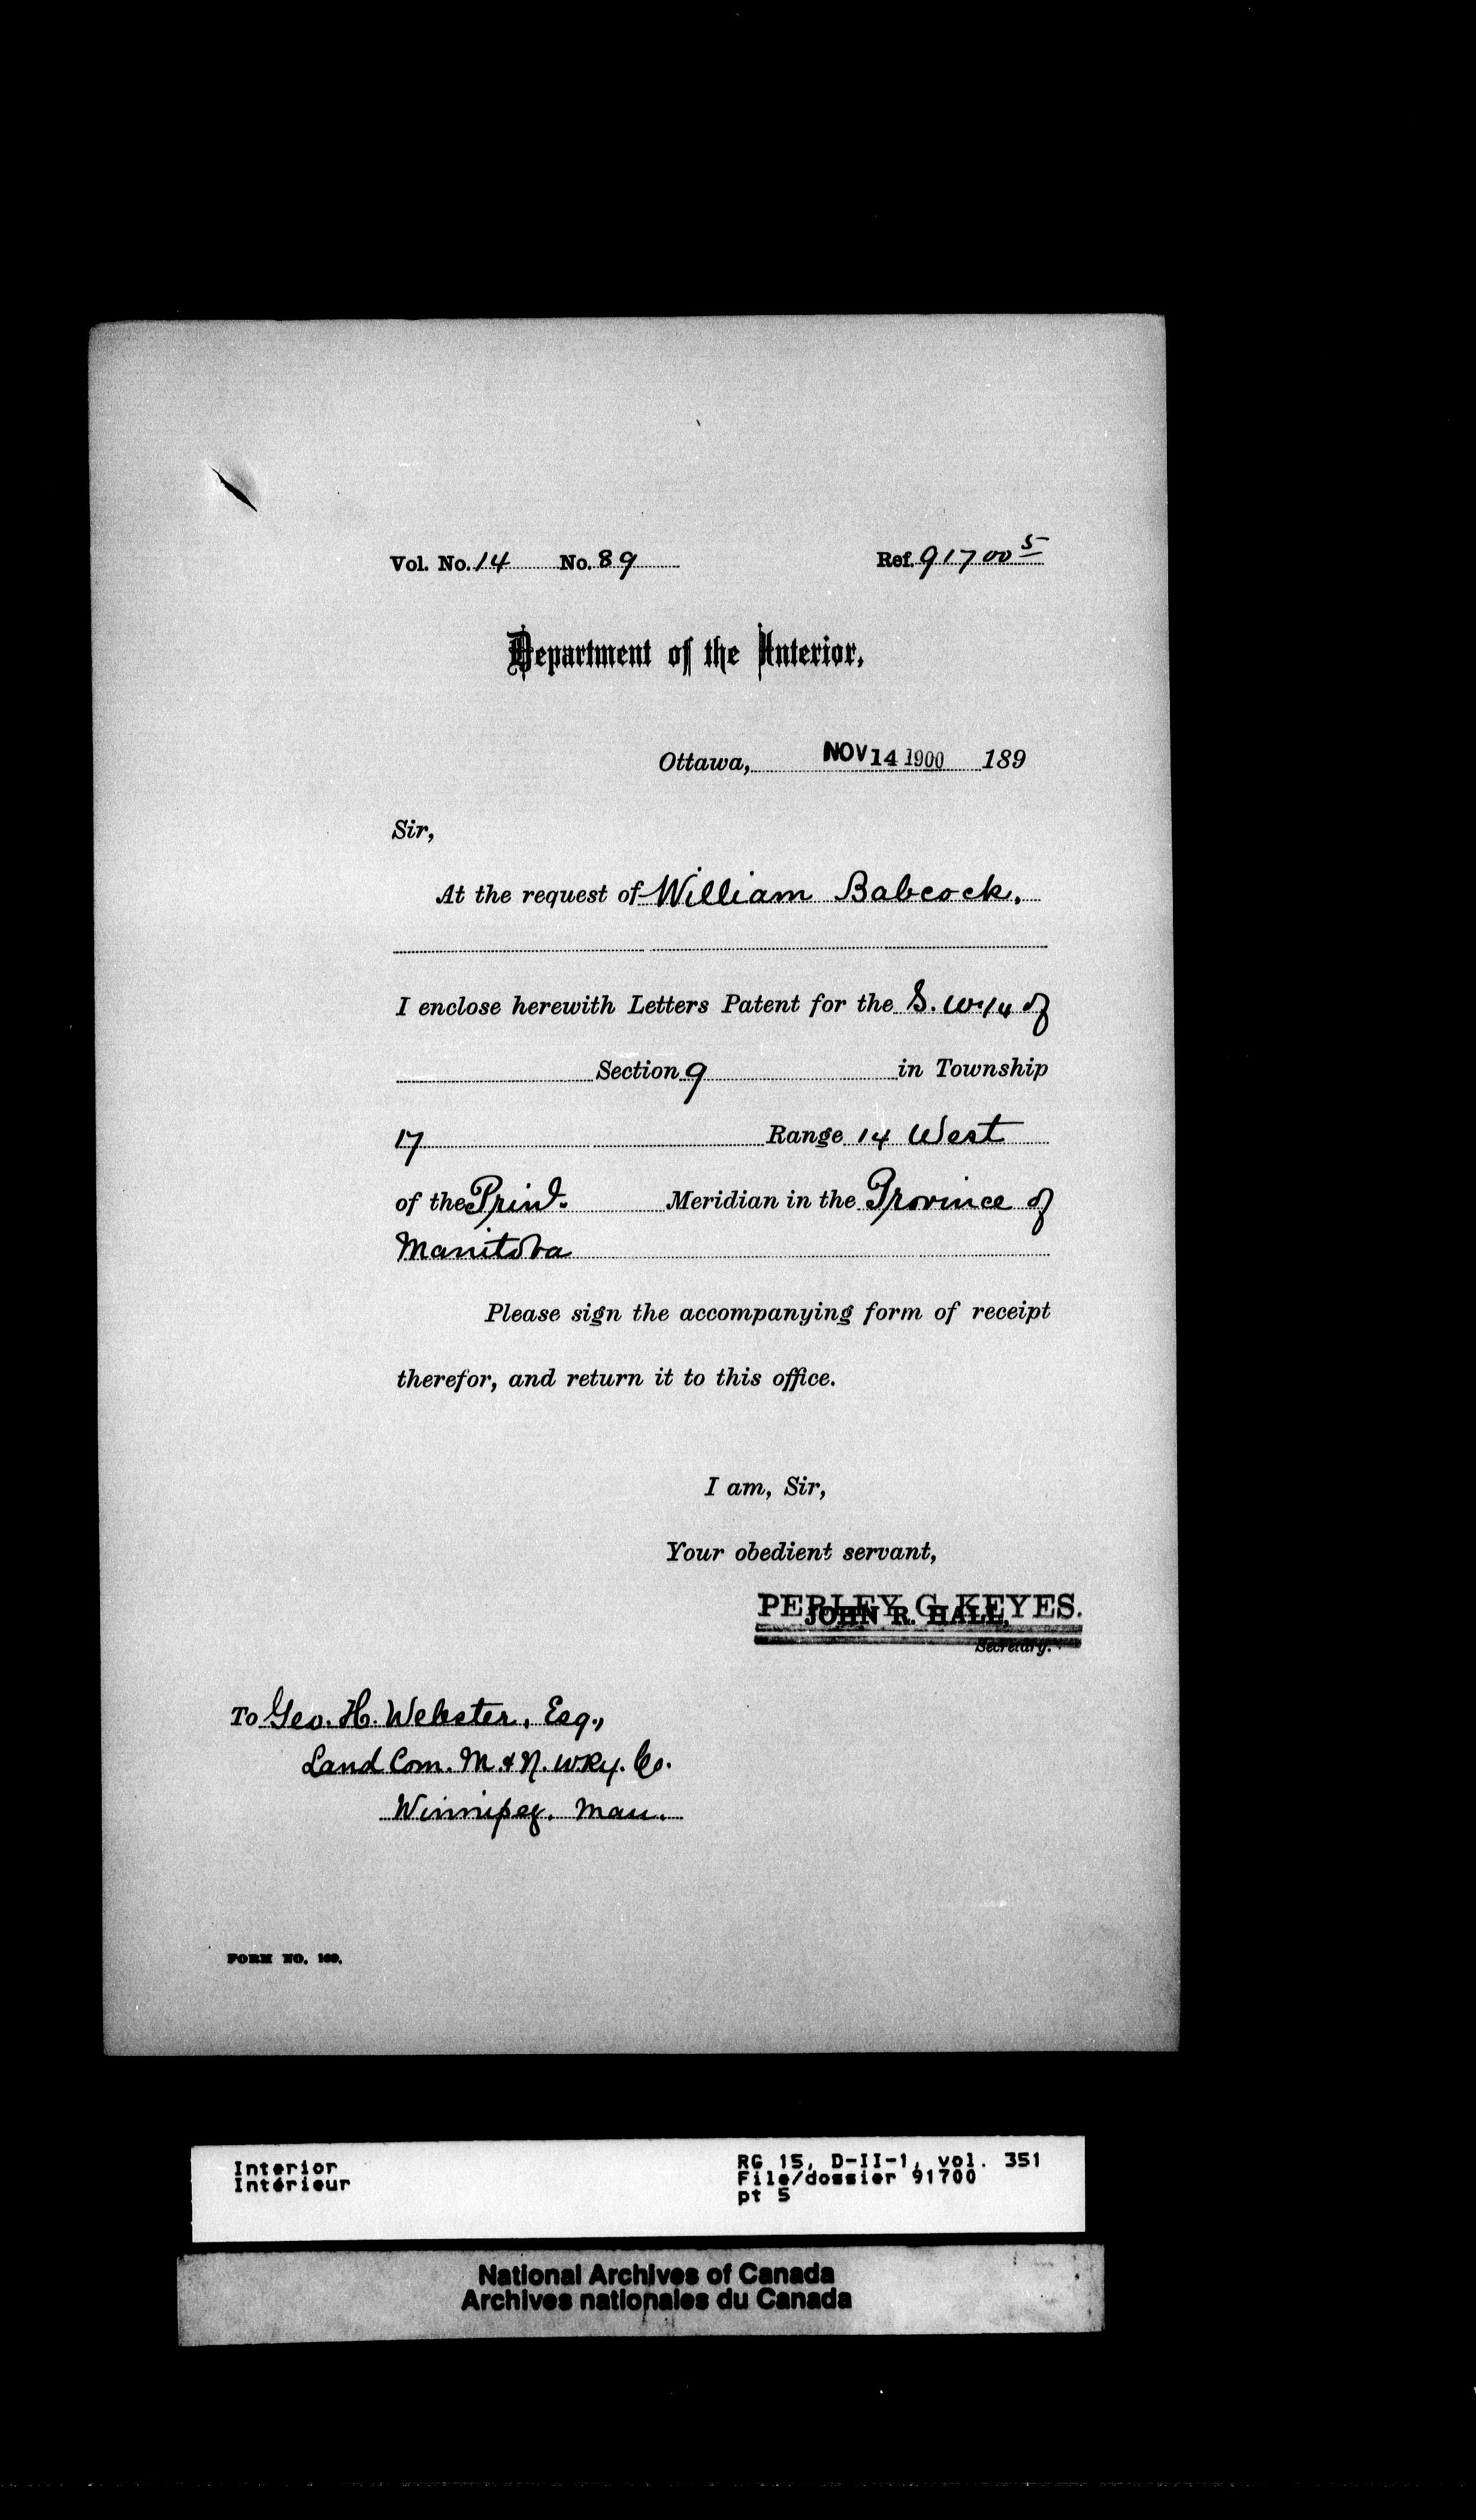 Vol. No. 14 No. 89 Ref. 91700 5
Department of the Interior,
Ottawa, NOV 14 1900 189
Sir,
At the request of William Babcock.
I enclose herewith Letters Patent for the S. W. 1/4 of
Section 9 in Township
17 Range 14 West
of the Prinl. Meridian in the Province of
Manitoba
Please sign the accompanying form of receipt
therefor, and return it to this office.
I am, Sir,
Your obedient servant,
PERLEY G. KEYES.
JOHN R. HALL,
Secretary.
To Geo. H. Webster, Esq.,
Land Com. M. & N. W. Ry. Co.
Winnipeg. Man.
FORM NO. 169.
Interior
Intérieur
RG 15, D-II-1, vol. 351
File/dossier 91700
pt 5
National Archives of Canada
Archives nationales du Canada